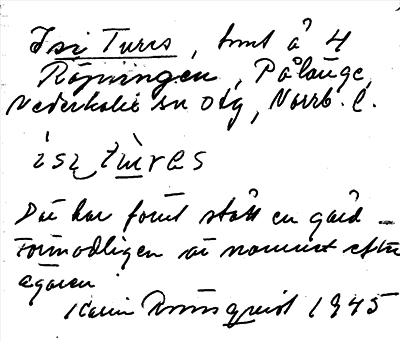 Isi Tures, tomt å 4
Röjningen, Pålänge,
Nederkalix sn otg, Norrb. l.
isi tures
Där har förut stått en gård –
Förmodligen är namnet efter
ägaren
Karin Rönnquist 1945